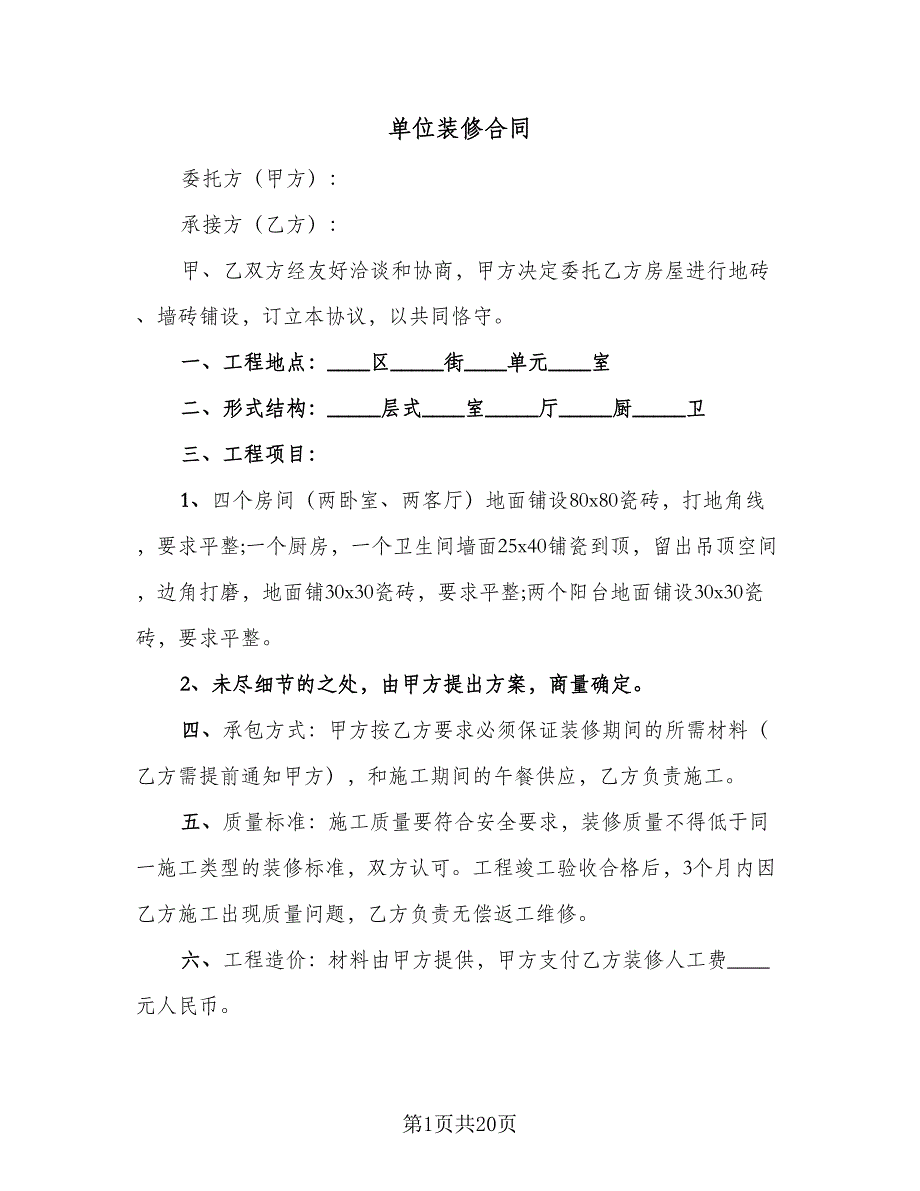 单位装修合同
委托方（甲方）：
承接方（乙方）：
甲、乙双方经友好洽谈和协商，甲方决定委托乙方房屋进行地砖
、墙砖铺设，订立本协议，以共同恪守。
一、工程地点：____区_____街____单元____室
二、形式结构：_____层式____室_____厅_____厨_____卫
三、工程项目：
1、四个房间（两卧室、两客厅）地面铺设80x80瓷砖，打地角线
，要求平整;一个厨房，一个卫生间墙面25x40铺瓷到顶，留出吊顶空间
，边角打磨，地面铺30x30瓷砖，要求平整;两个阳台地面铺设30x30瓷
砖，要求平整。
2、未尽细节的之处，由甲方提出方案，商量确定。
四、承包方式：甲方按乙方要求必须保证装修期间的所需材料（
乙方需提前通知甲方），和施工期间的午餐供应，乙方负责施工。
五、质量标准：施工质量要符合安全要求，装修质量不得低于同
一施工类型的装修标准，双方认可。工程竣工验收合格后，3个月内因
乙方施工出现质量问题，乙方负责无偿返工维修。
六、工程造价：材料由甲方提供，甲方支付乙方装修人工费____
元人民币。
第1页共20页